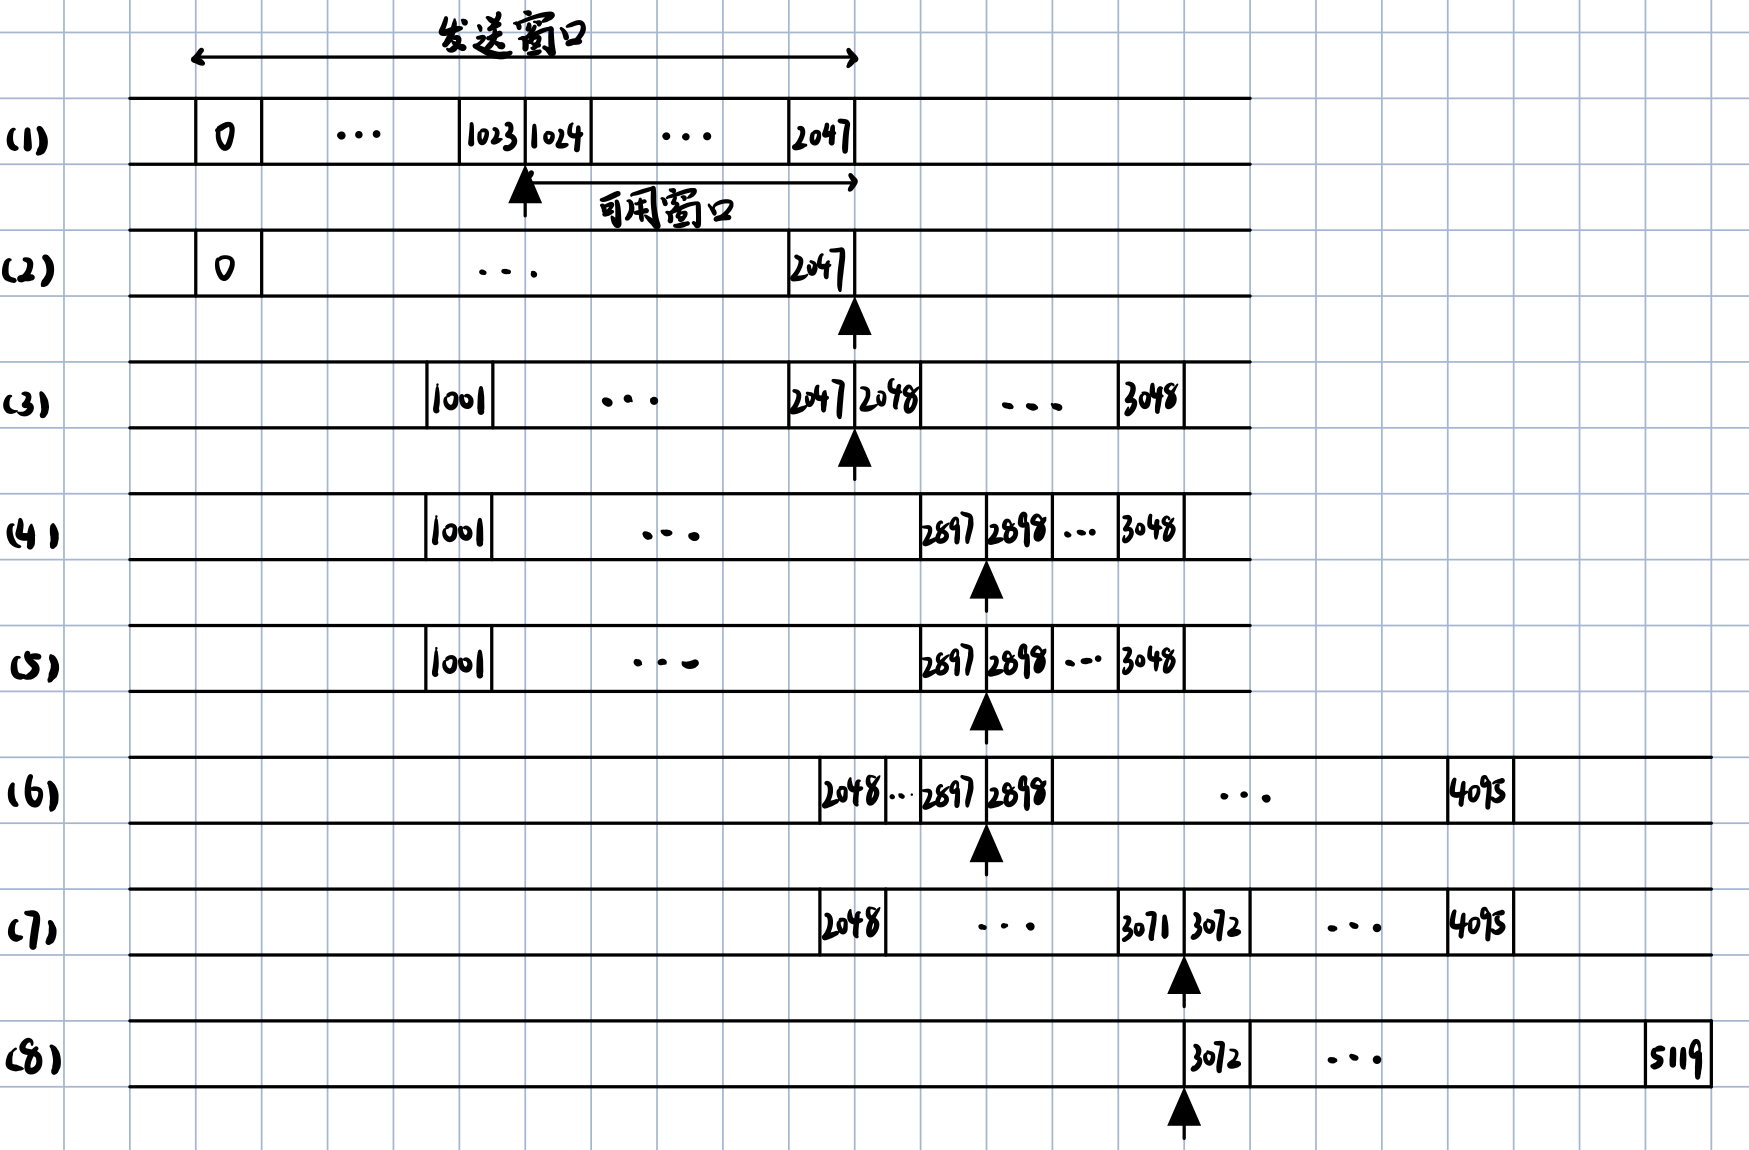 发送窗口
(1) 0 ... 1023 1024 ... 2047
可用窗口
(2) 0 ... 2047
(3) 1001 ... 2047 2048 ... 3048
(4) 1001 ... 2897 2898 ... 3048
(5) 1001 ... 2897 2898 ... 3048
(6) 2048 ... 2897 2898 ... 4095
(7) 2048 ... 3071 3072 ... 4095
(8) 3072 ... 5119